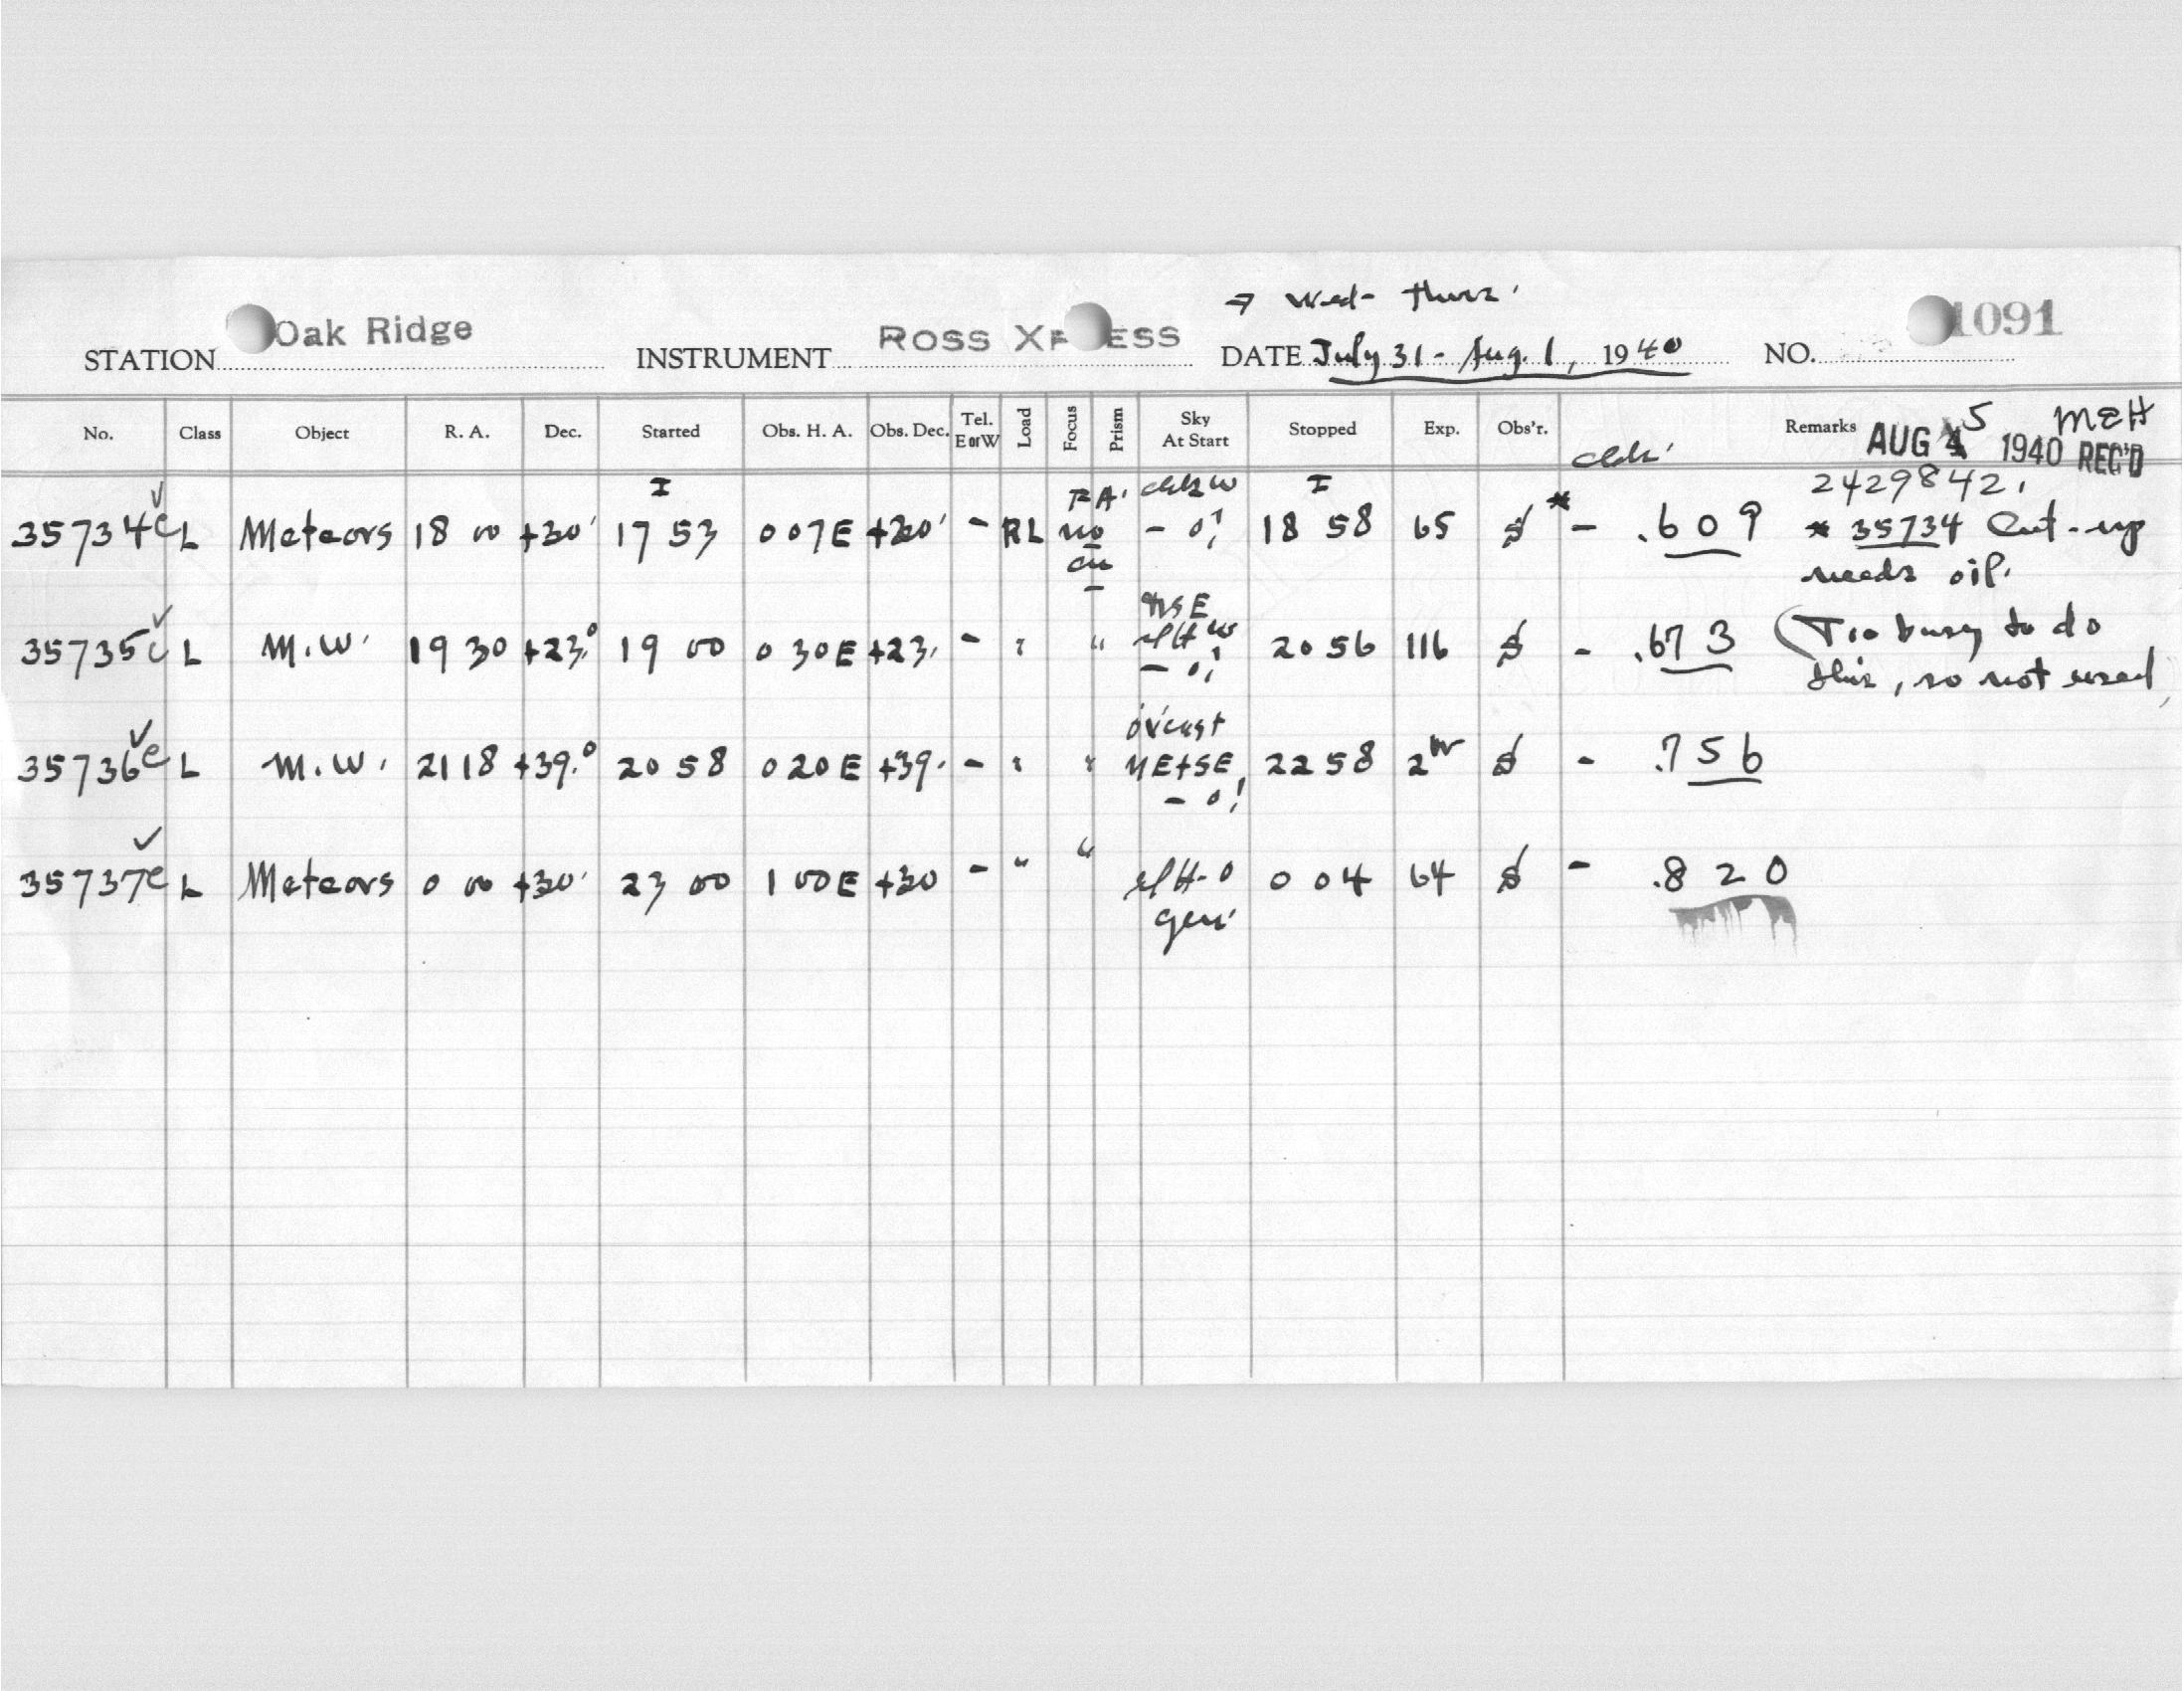 Wed - Thurs.
STATION Oak Ridge INSTRUMENT ROSS XPRESS DATE July 31 - Aug. 1, 1940 NO. 1091
No. Class Object R. A. Dec. Started Obs. H. A. Obs. Dec. Tel. E or W Load Focus Prism Sky At Start Stopped Exp. Obs'r. Remarks AUG 5 1940 REC'D MEH
I RA. I 2429842.
35734 L Meteors 18 00 +30 17 53 0 07E - RL no 18 58 65 * - .609 * 35734 Cut-up
needs oil.
35735 L M.W. 19 30 +23° 19 00 0 30E +23 - " 20 56 116 - .673 (Too busy to do
this, so not used
ovcast
35736 L M.W. 21 18 +39° 20 58 0 20E +39 - " " NE+SE 22 58 2 - .756
35737 L Meteors 0 00 +30 23 00 1 00E +30 - " " 0 04 64 - .820